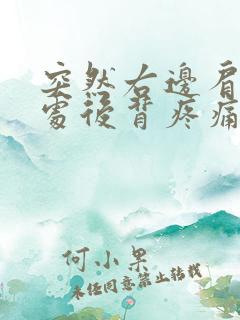 突然右邊肩
處後背疼痛
何小果
未经同意禁止转载